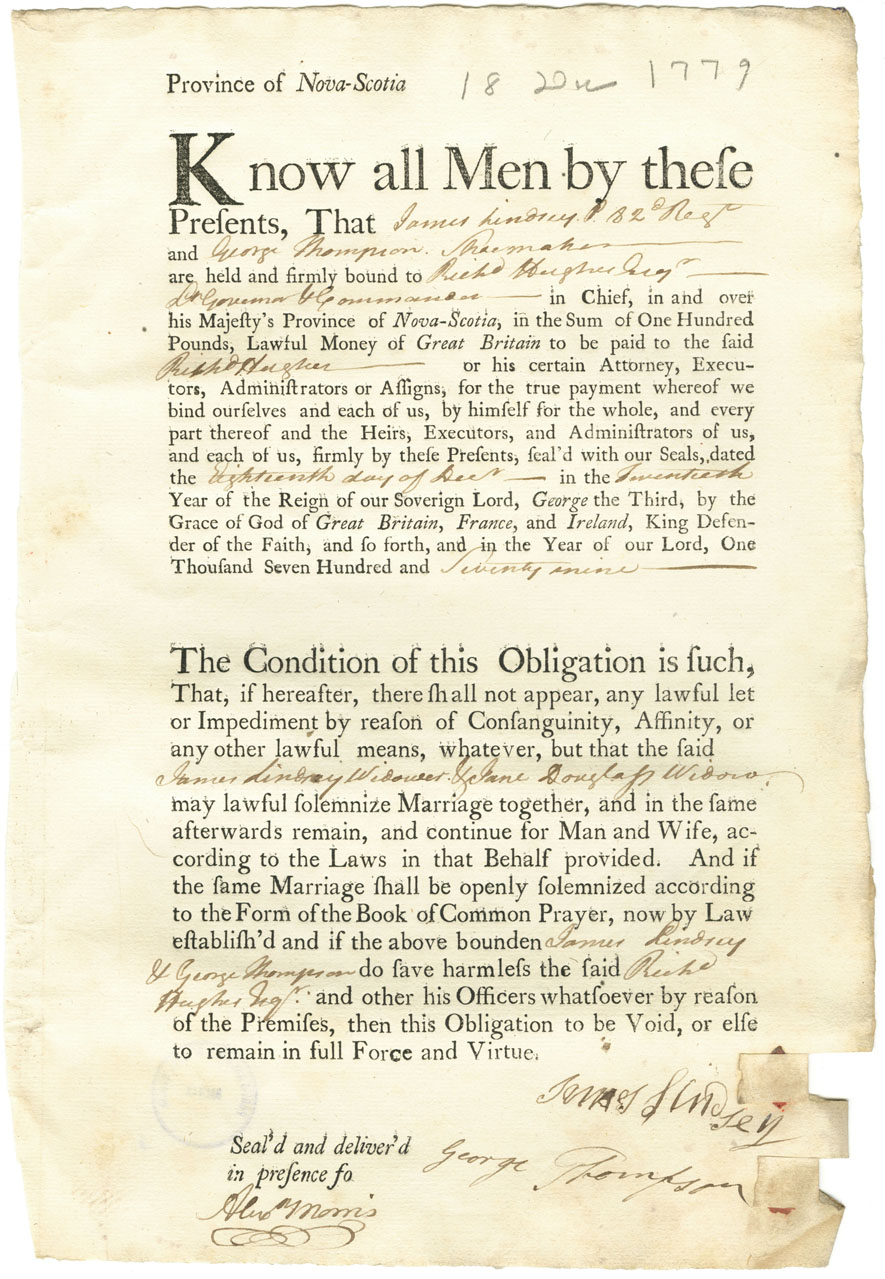 Province of Nova-Scotia 18 Dec 1779
Know all Men by theſe
Preſents, That James Lindsey P. 82d Regt
and George Thompson. Shoemaker
are held and firmly bound to Richd Hughes Esqr
Lt Governor & Commander in Chief, in and over
his Majeſty's Province of Nova-Scotia, in the Sum of One Hundred
Pounds, Lawful Money of Great Britain to be paid to the ſaid
Richd Hughes or his certain Attorney, Execu-
tors, Adminiſtrators or Aſſigns, for the true payment whereof we
bind ourſelves and each of us, by himſelf for the whole, and every
part thereof and the Heirs, Executors, and Adminiſtrators of us,
and each of us, firmly by theſe Preſents, ſeal'd with our Seals, dated
the Eighteenth day of Decr in the Twentieth
Year of the Reign of our Soverign Lord, George the Third, by the
Grace of God of Great Britain, France, and Ireland, King Defen-
der of the Faith, and ſo forth, and in the Year of our Lord, One
Thouſand Seven Hundred and Seventy nine
The Condition of this Obligation is ſuch,
That, if hereafter, there ſhall not appear, any lawful let
or Impediment by reaſon of Conſanguinity, Affinity, or
any other lawful means, whatever, but that the ſaid
James Lindsay Widower & Jane Douglaſs Widow
may lawful ſolemnize Marriage together, and in the ſame
afterwards remain, and continue for Man and Wife, ac-
cording to the Laws in that Behalf provided. And if
the ſame Marriage ſhall be openly ſolemnized according
to the Form of the Book of Common Prayer, now by Law
eſtabliſh'd and if the above bounden James Lindsey
& George Thompson do ſave harmleſs the ſaid Richd
Hughes Esqr. and other his Officers whatſoever by reaſon
of the Premiſes, then this Obligation to be Void, or elſe
to remain in full Force and Virtue.
James Lindsey
Seal'd and deliver'd
in preſence fo
George Thompson
Alexr Morris